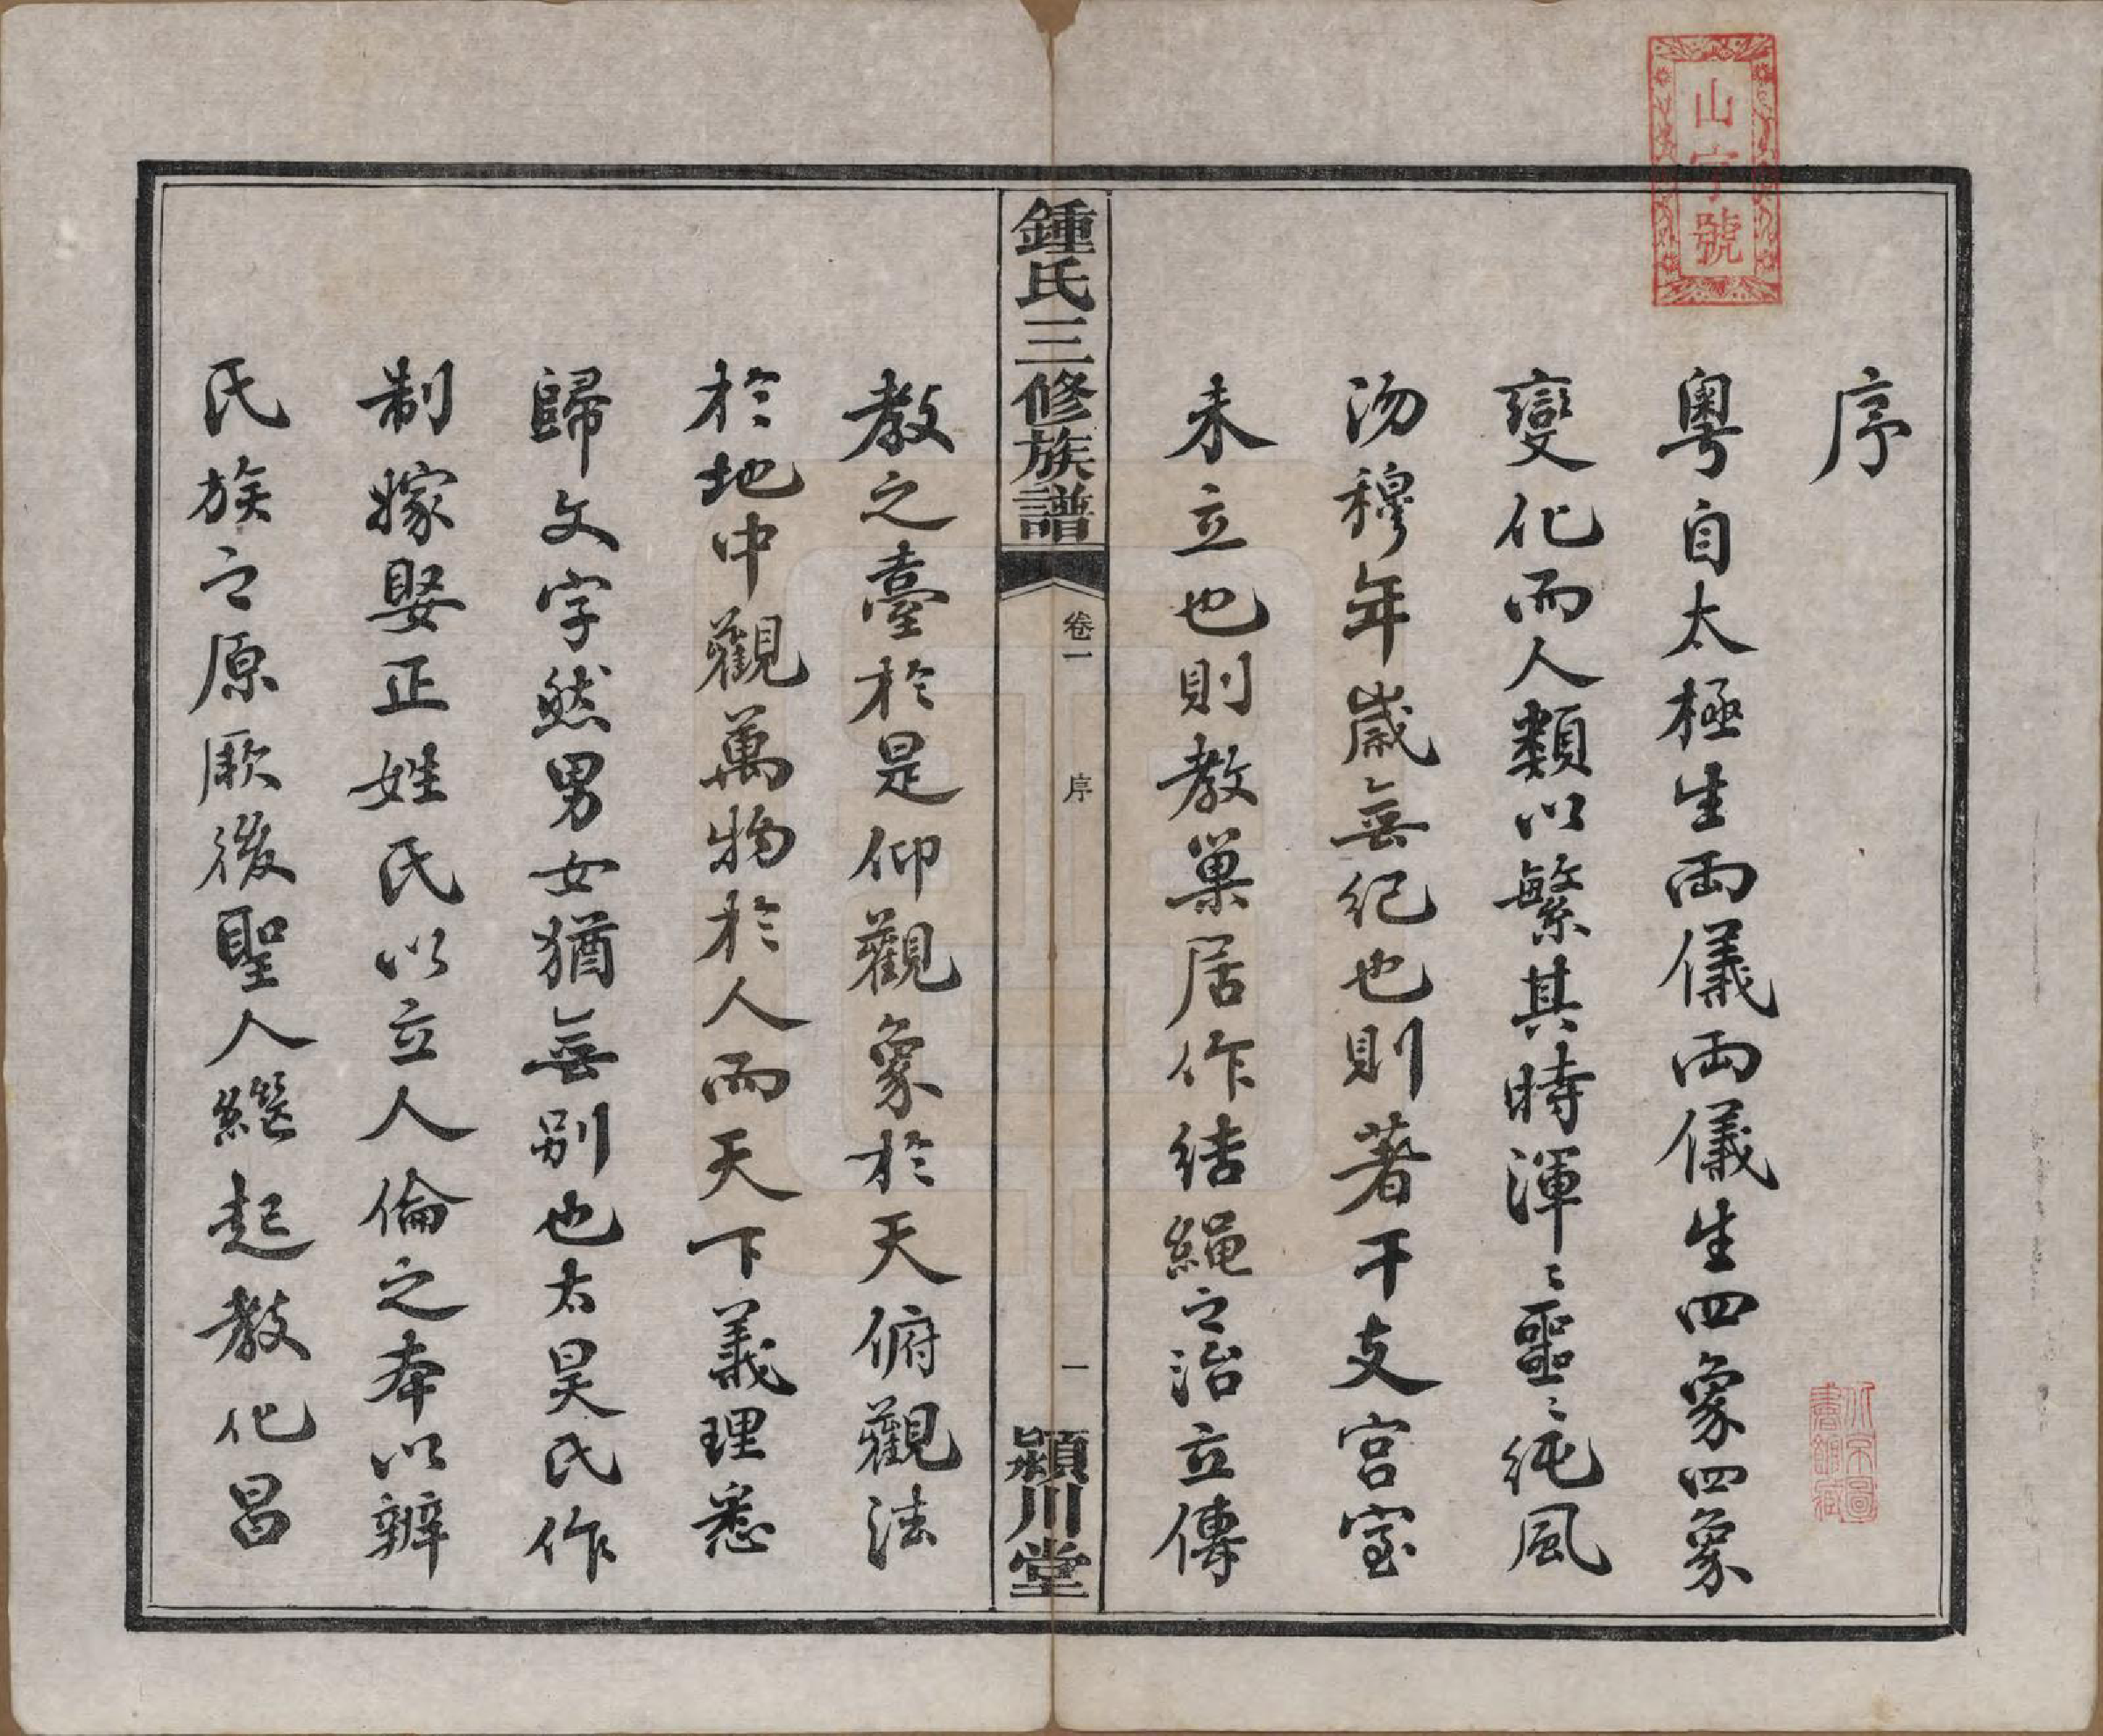 山字號
序
粵自太極生両儀両儀生四象四象
變化而人類以繁其時渾〻噩〻純風
沕穆年歲無紀也則著干支宮室
未立也則教巢居作结繩之治立傳
鍾氏三修族譜
卷一
序
一
潁川堂
教之臺於是仰觀象於天俯觀法
於地中觀萬物於人而天下義理悉
歸文字然男女猶無别也太昊氏作
制嫁娶正姓氏以立人倫之本以辨
氏族之原厥後聖人繼起教化昌